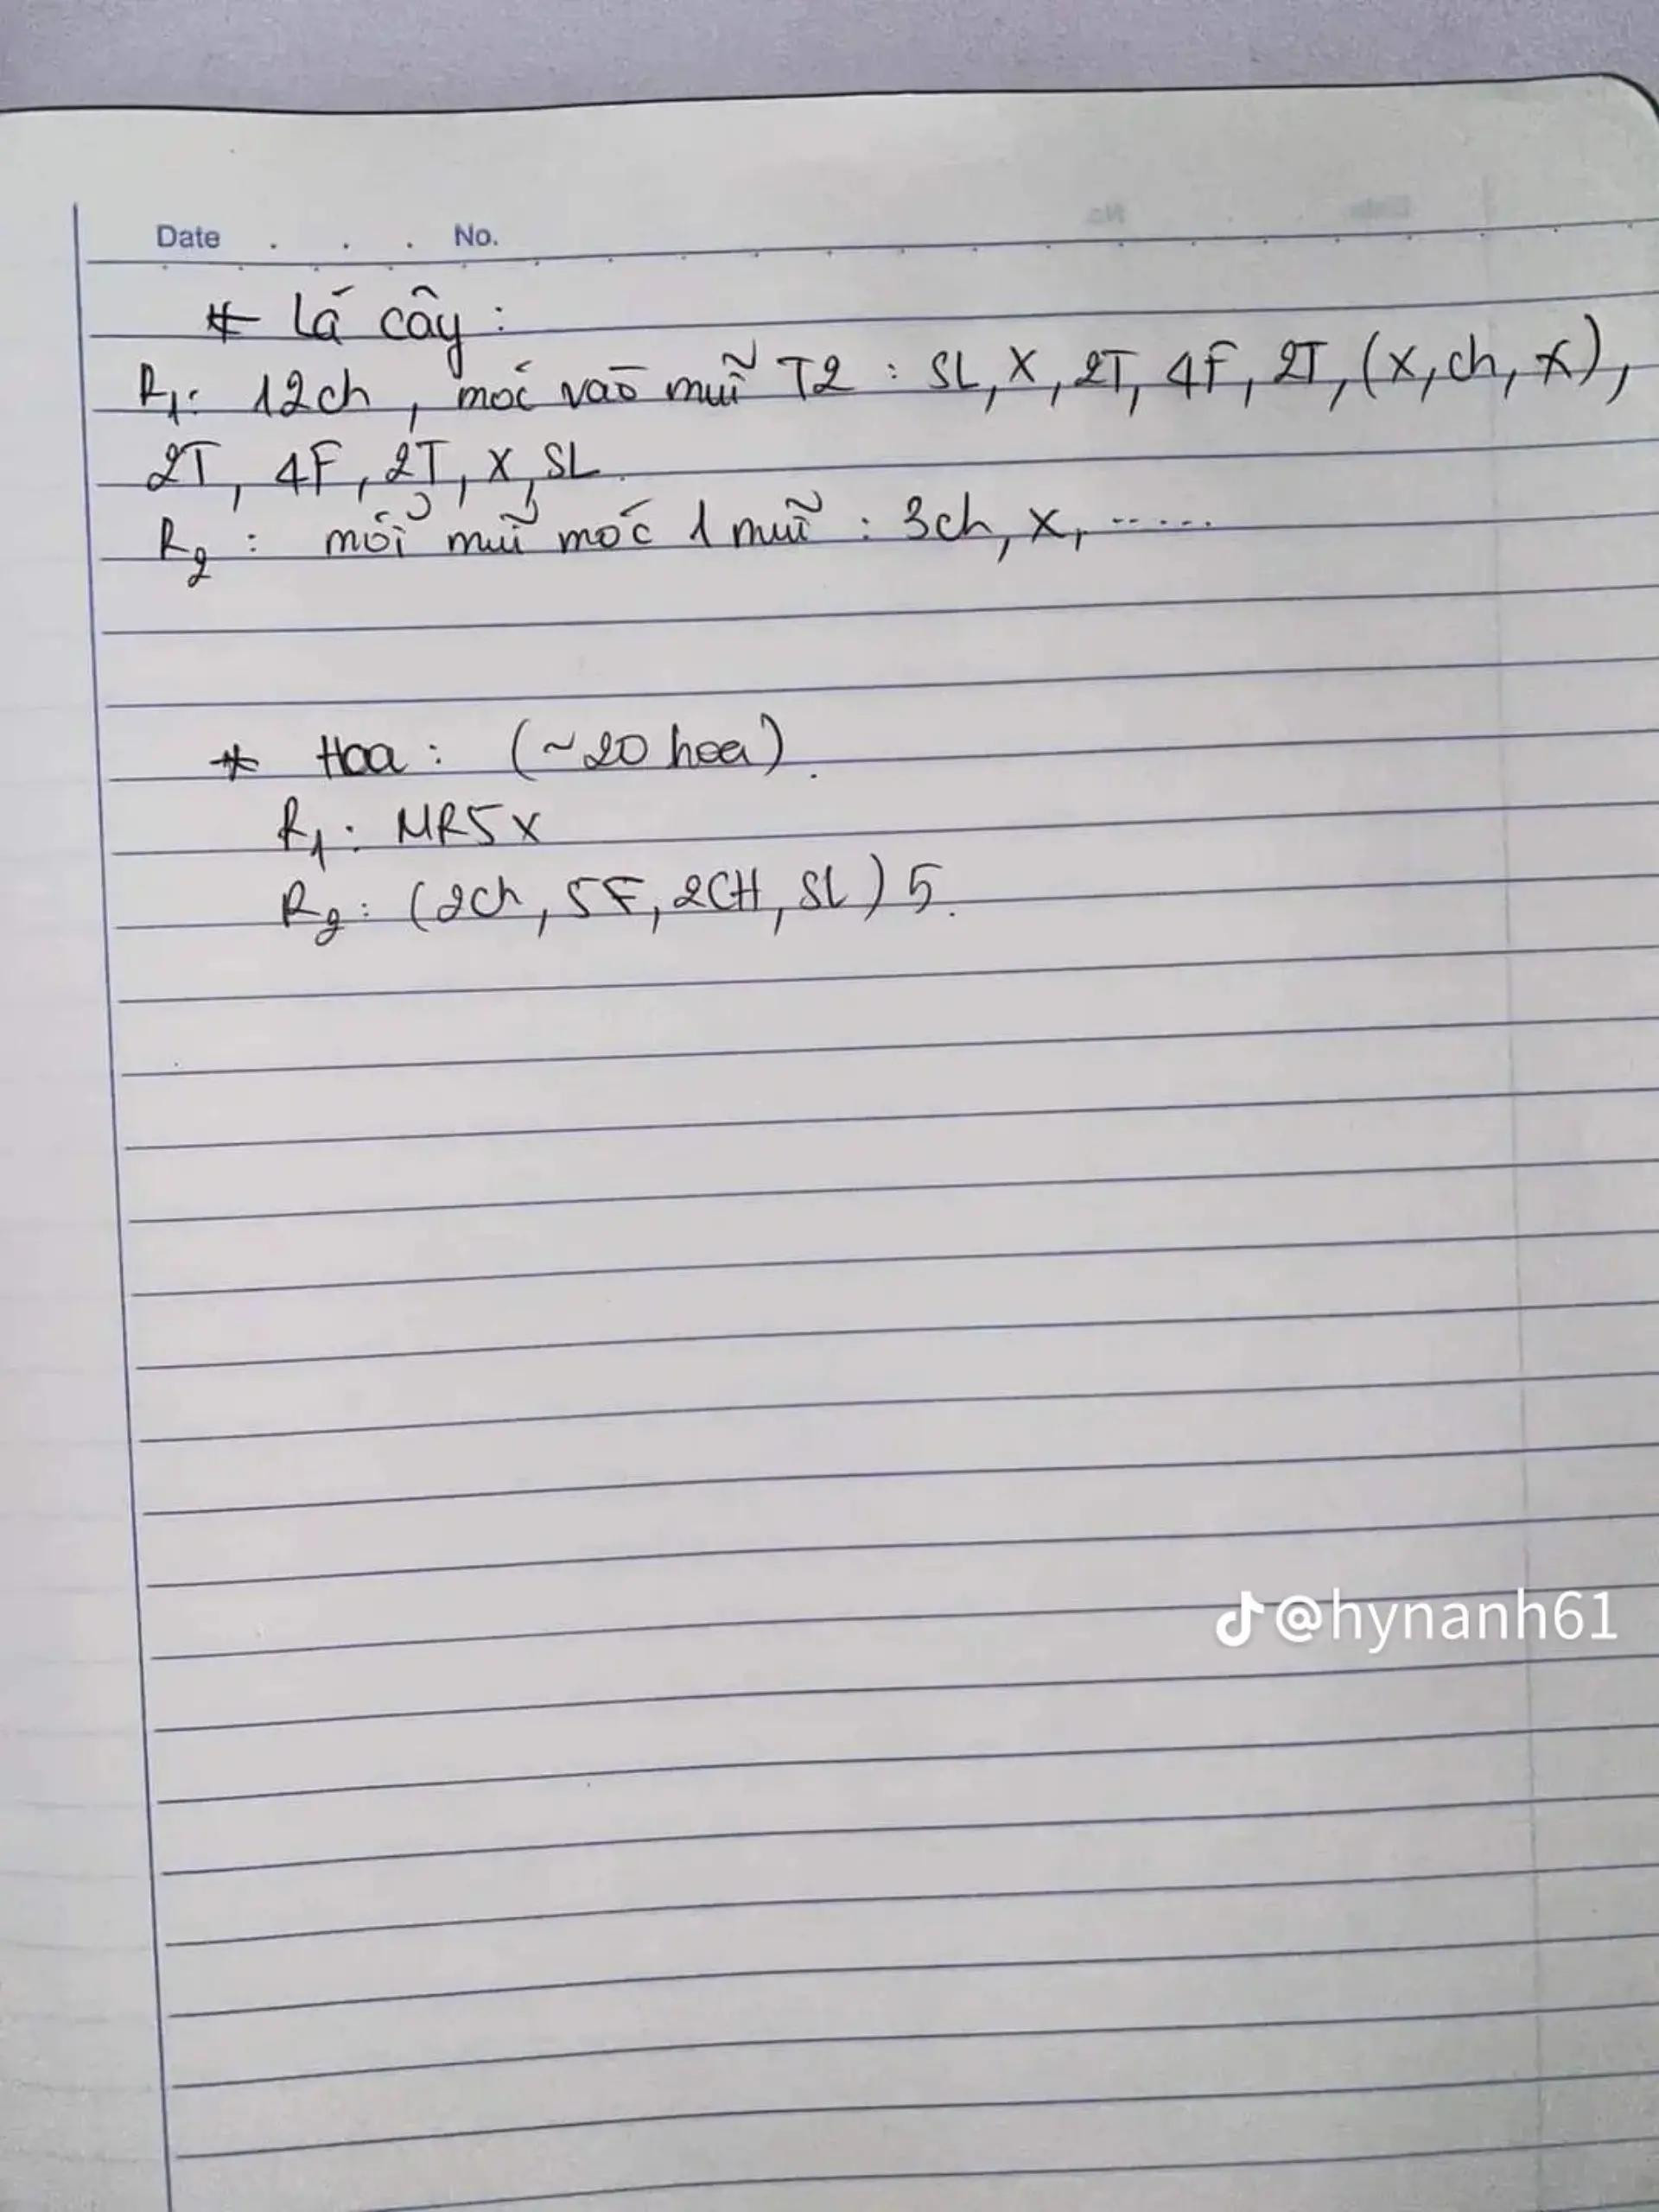 Date . . . No.
* Lá cây :
R1: 12ch, móc vào mũi T2 : SL, X, 2T, 4F, 2T, (X, ch, X),
2T, 4F, 2T, X, SL.
R2 : mỗi mũi móc 1 mũi : 3ch, X, ......
* Hoa : (~20 hoa).
R1 : MR5X
R2 : (2ch, 5F, 2CH, SL) 5.
@hynanh61